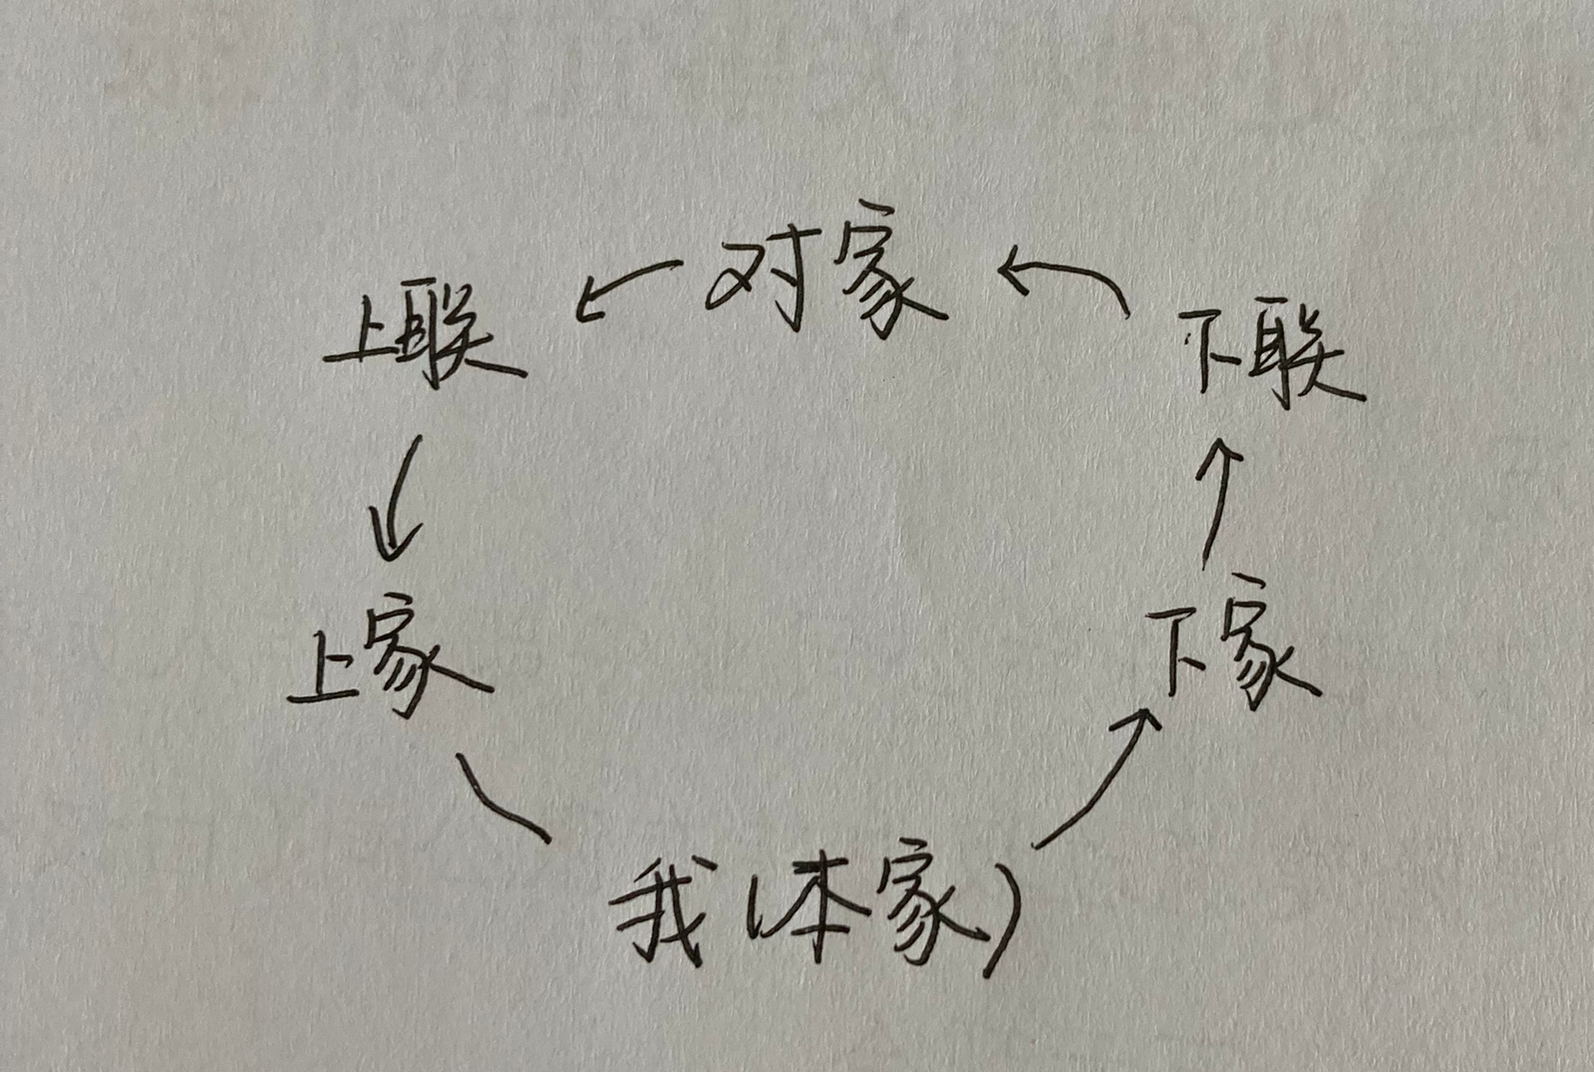 对家
上联
下联
上家
下家
我(本家)